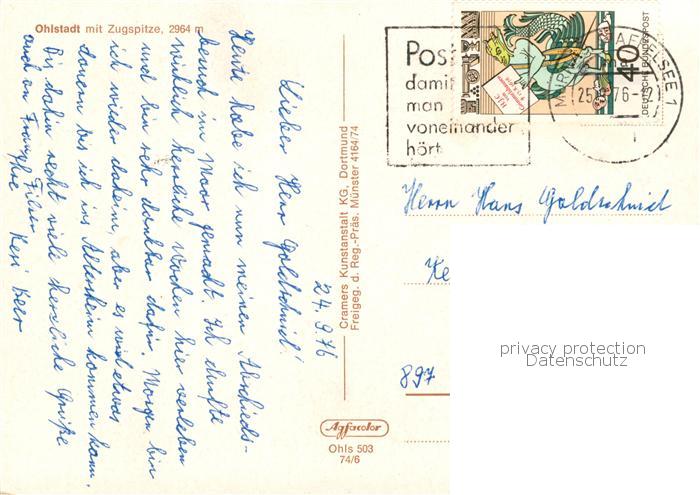 Ohlstadt mit Zugspitze, 2964 m
24.9.76
Lieber Herr Goldschmid!
Heute habe ich nun meinen Abschieds-
besuch im Moor gemacht. Ich durfte
wirklich herrliche Wochen hier verleben
und bin sehr dankbar dafür. Morgen bin
ich wieder daheim, aber es wird etwas
dauern bis ich ins Altersheim kommen kann.
Bis dahin recht viele herzliche Grüße
auch an
Resi Beer
Cramers Kunstanstalt KG, Dortmund
Freigeg. d. Reg.-Präs. Münster 4164/74
Agfacolor
Ohls 503
74/6
Post
damit
man
voneinander
hört
SEE 1
25.
76-
40
DEUTSCHE BUNDESPOST
Herrn Hans Goldschmid
897
privacy protection
Datenschutz